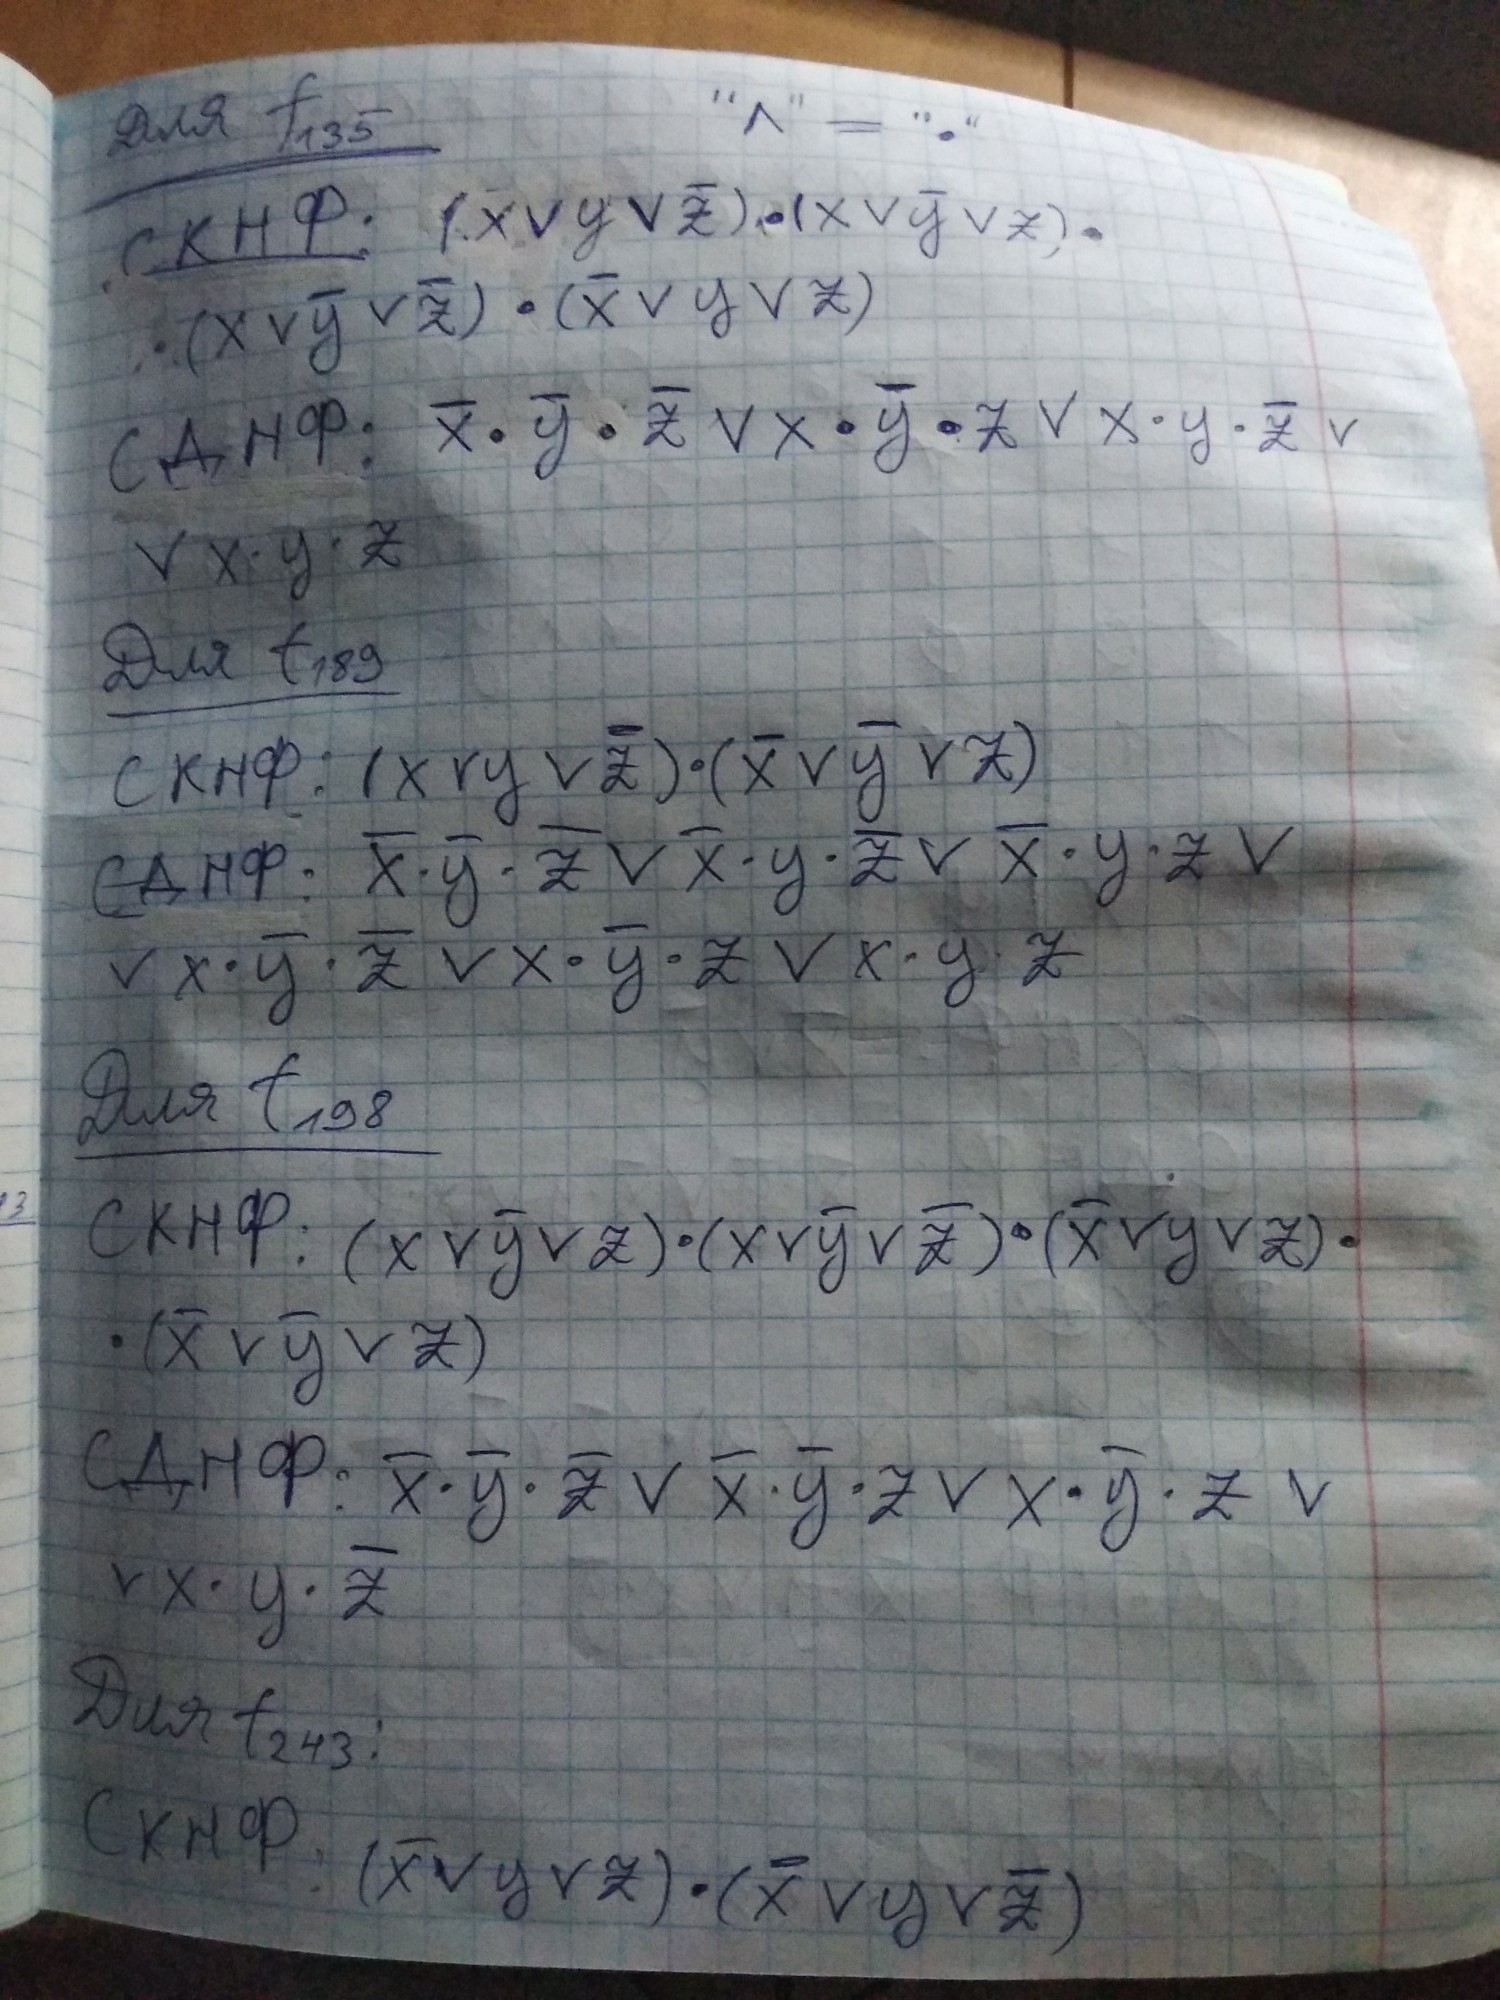 Для f₁₃₅ "∧" = "·"
СКНФ: (x∨y∨z̅)·(x∨y̅∨z)·
·(x∨y̅∨z̅)·(x̅∨y∨z)
СДНФ: x̅·y̅·z̅∨x·y̅·z∨x·y·z̅∨
∨x·y·z
Для f₁₈₉
СКНФ: (x∨y∨z̅)·(x̅∨y̅∨z)
СДНФ: x̅·y̅·z̅∨x̅·y·z̅∨x̅·y·z∨
∨x·y̅·z̅∨x·y̅·z∨x·y·z
Для f₁₉₈
13
СКНФ: (x∨y̅∨z)·(x∨y̅∨z̅)·(x̅∨y∨z)·
·(x̅∨y̅∨z)
СДНФ: x̅·y̅·z̅∨x̅·y̅·z∨x·y̅·z∨
∨x·y·z̅
Для f₂₄₃:
СКНФ: (x̅∨y∨z)·(x̅∨y∨z̅)